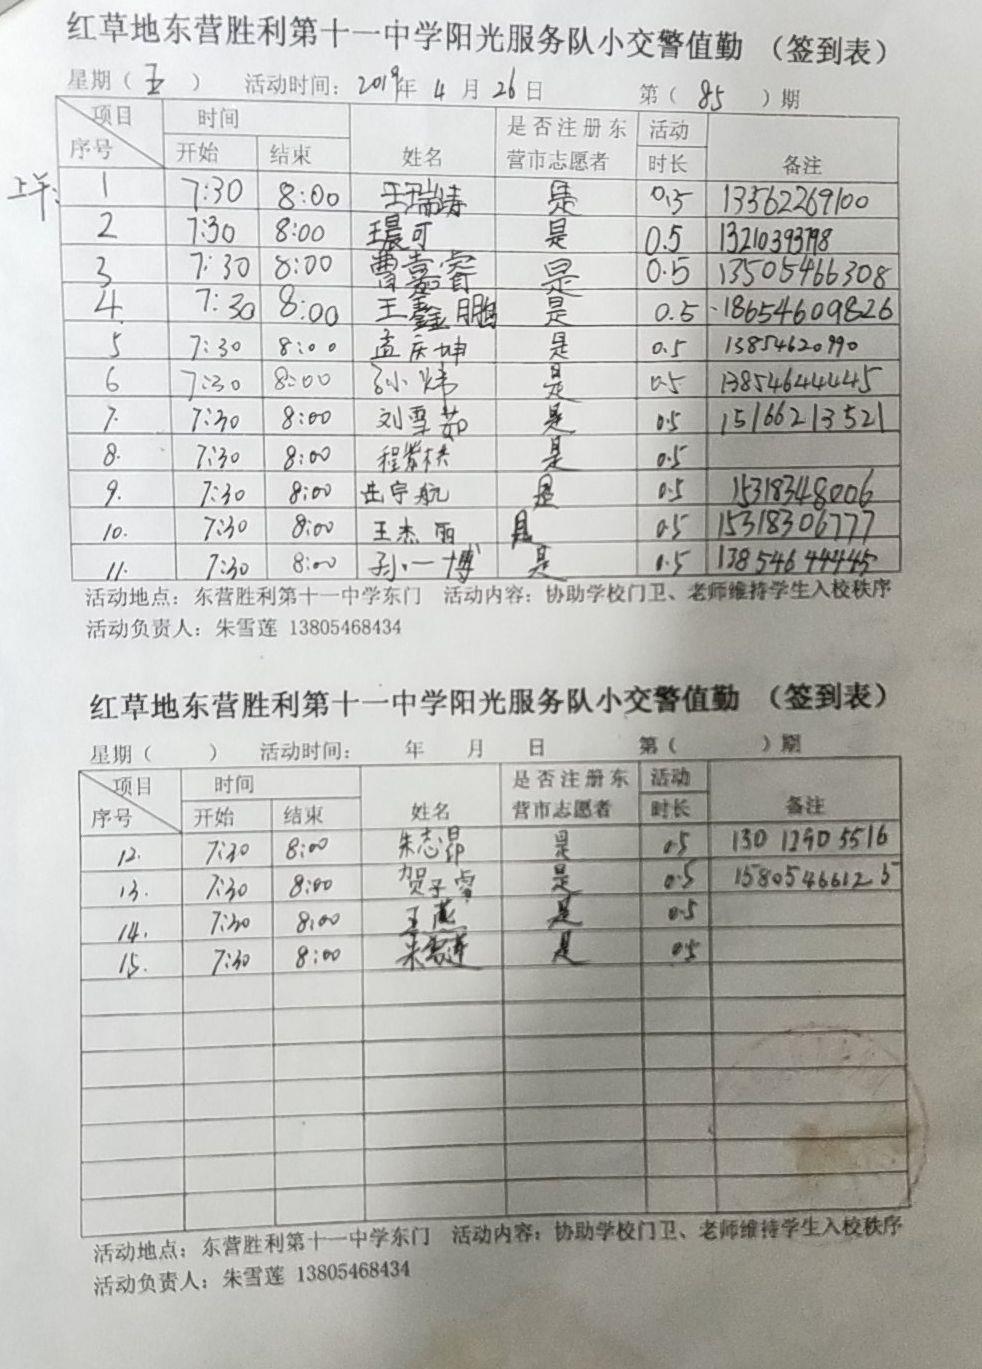 红草地东营胜利第十一中学阳光服务队小交警值勤 （签到表）
星期（ 五 ） 活动时间：2019年 4 月 26 日 第（ 85 ）期
项目 时间 是否注册东 活动
序号 开始 结束 姓名 营市志愿者 时长 备注
上午：
1 7:30 8:00 王瑞涛 是 0.5 13562269100
2 7:30 8:00 王晨可 是 0.5
3 7:30 8:00 曹嘉睿 是 0.5 13505466308
4 7:30 8:00 王鑫鹏 是 0.5 18654609826
5 7:30 8:00 孟庆坤 是 0.5 13854620990
6 7:30 8:00 孙小炜 是 0.5 13854644445
7. 7:30 8:00 刘雪茹 是 0.5 15166213521
8. 7:30 8:00 程紫 是 0.5
9. 7:30 8:00 宇航 是 0.5 15318348006
10. 7:30 8:00 王杰丽 是 0.5 15318306777
11. 7:30 8:00 孙一博 是 0.5 13854644445
活动地点：东营胜利第十一中学东门 活动内容：协助学校门卫、老师维持学生入校秩序
活动负责人：朱雪莲 13805468434
红草地东营胜利第十一中学阳光服务队小交警值勤 （签到表）
星期（ ） 活动时间： 年 月 日 第（ ）期
项目 时间 是否注册东 活动
序号 开始 结束 姓名 营市志愿者 时长 备注
12. 7:30 8:00 朱志昂 是 0.5 13012905516
13. 7:30 8:00 贺子睿 是 0.5 15805466125
14. 7:30 8:00 王燕 是 0.5
15. 7:30 8:00 朱雪莲 是 0.5
活动地点：东营胜利第十一中学东门 活动内容：协助学校门卫、老师维持学生入校秩序
活动负责人：朱雪莲 13805468434